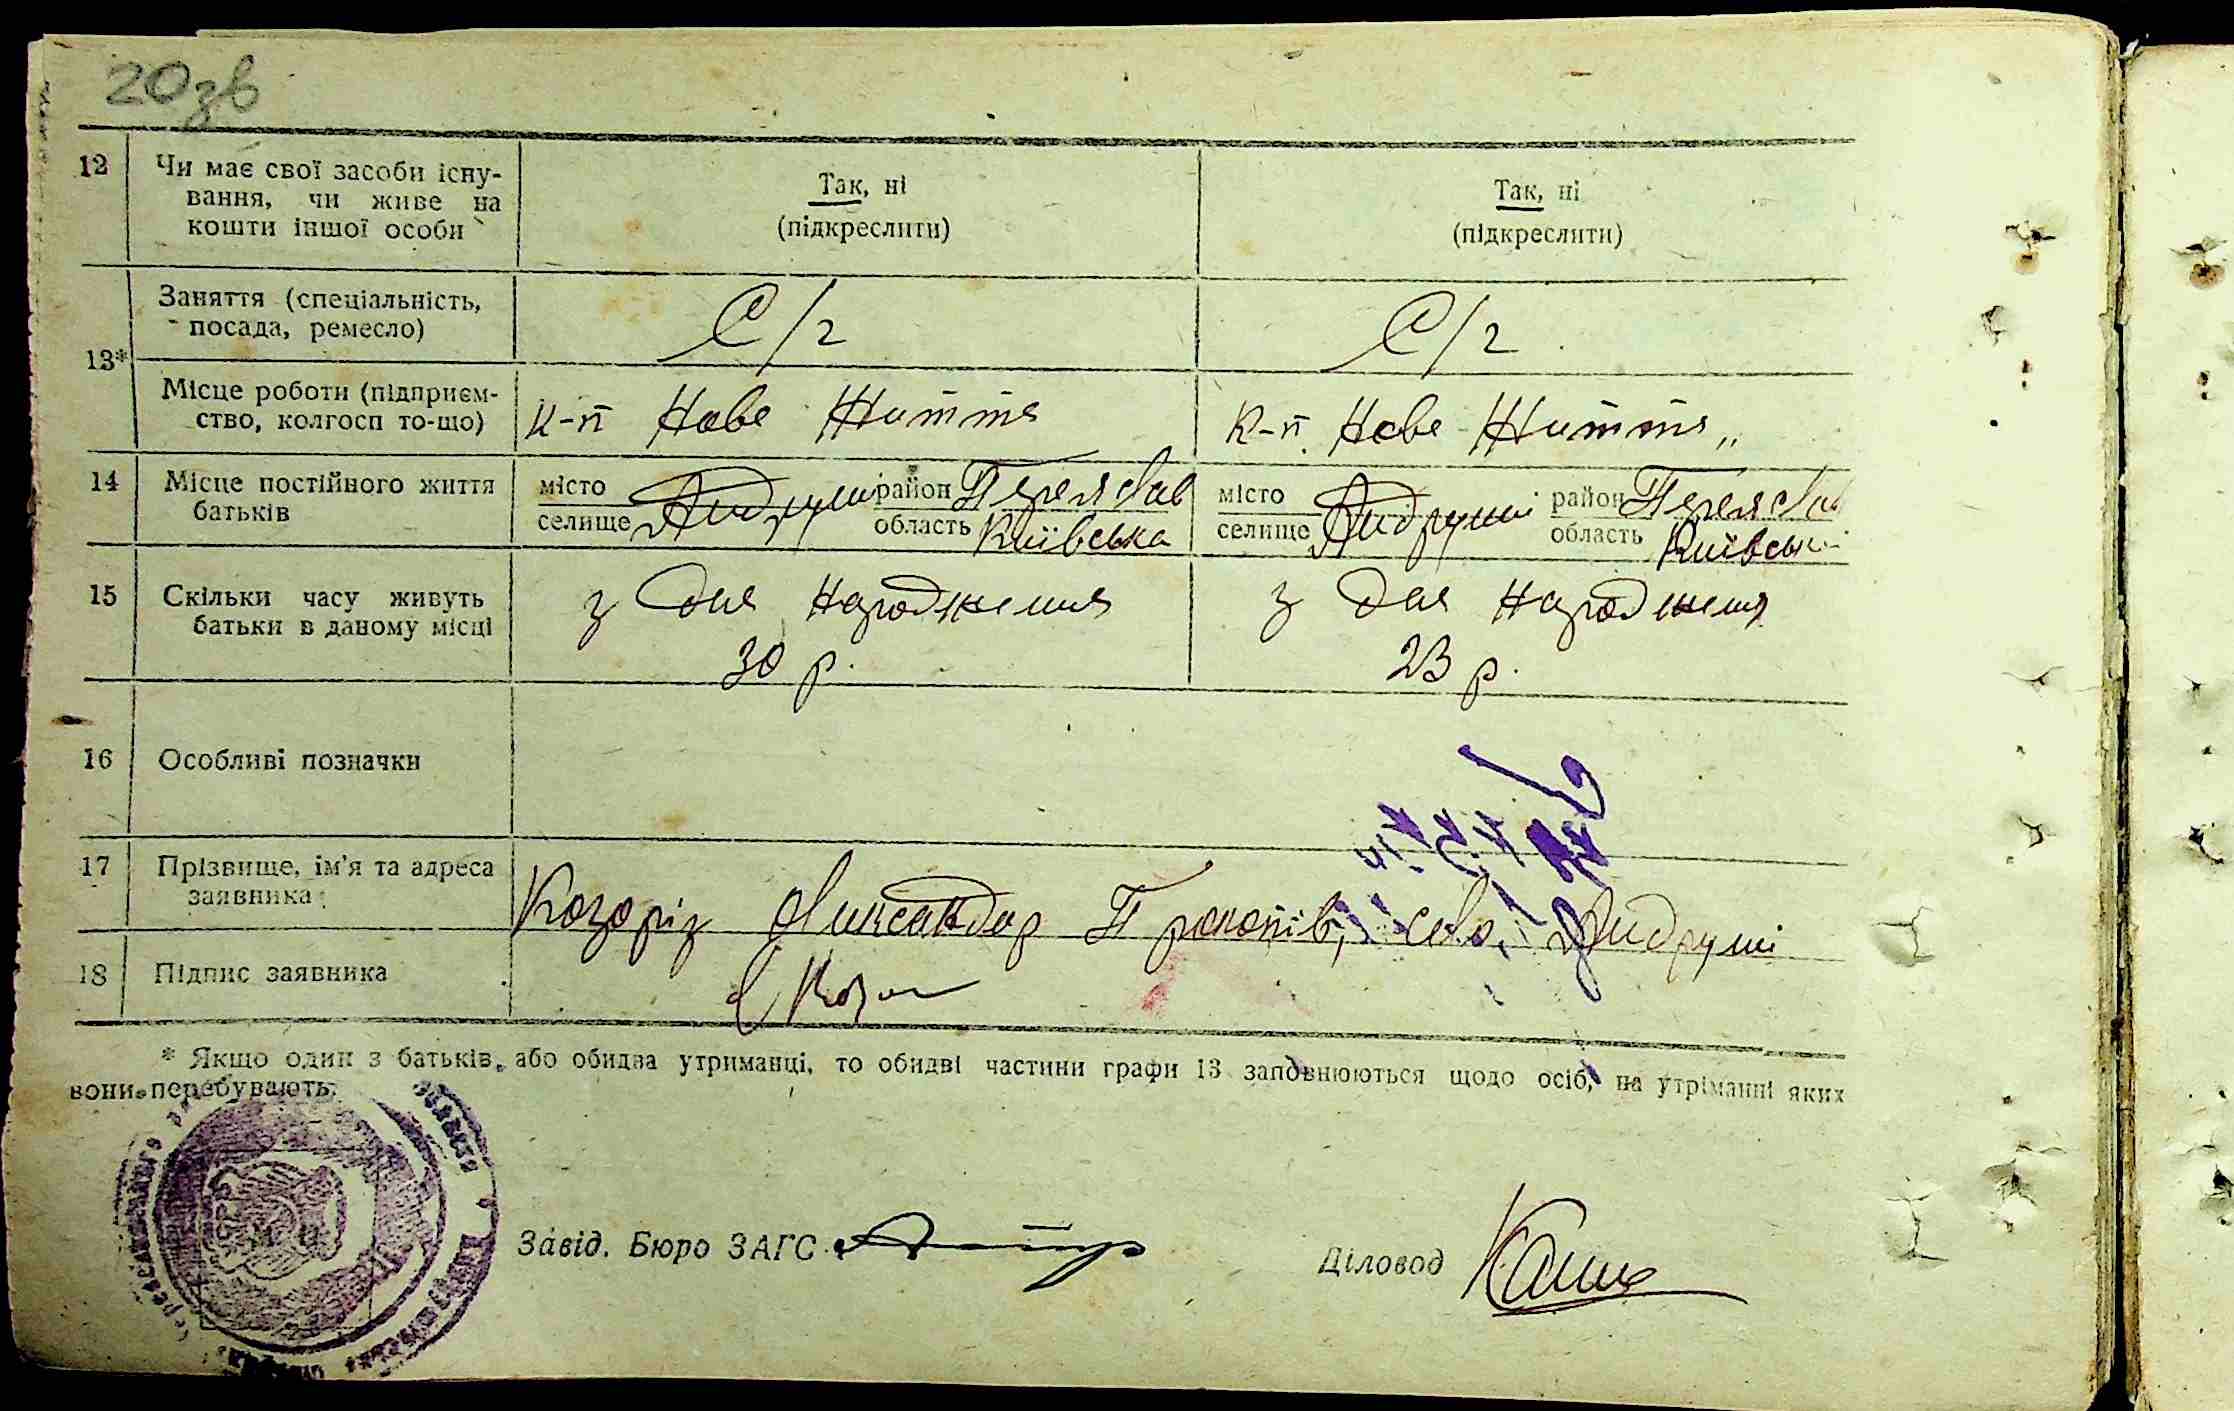 20зв
12 Чи має свої засоби існу-
вання, чи живе на
кошти іншої особи
Так, ні
(підкреслити)
Так, ні
(підкреслити)
13*
Заняття (спеціальність,
посада, ремесло)
С/г
С/г
Місце роботи (підприєм-
ство, колгосп то-що)
К-п Нове Життя
К-п Нове Життя"
14 Місце постійного життя
батьків
місто
селище Андруші
район Переяслав
область Київська
місто
селище Андруші
район Переяслав
область Київськ
15 Скільки часу живуть
батьки в даному місці
з дня народження
30 р.
з дня народження
23 р.
16 Особливі позначки
17 Прізвище, ім'я та адреса
заявника
Козоріз Олександр Прокопів, село, Андруші
18 Підпис заявника
* Якщо один з батьків, або обидва утриманці, то обидві частини графи 13 заповнюються щодо осіб, на утріманні яких
вони перебувають.
Завід. Бюро ЗАГС
Діловод